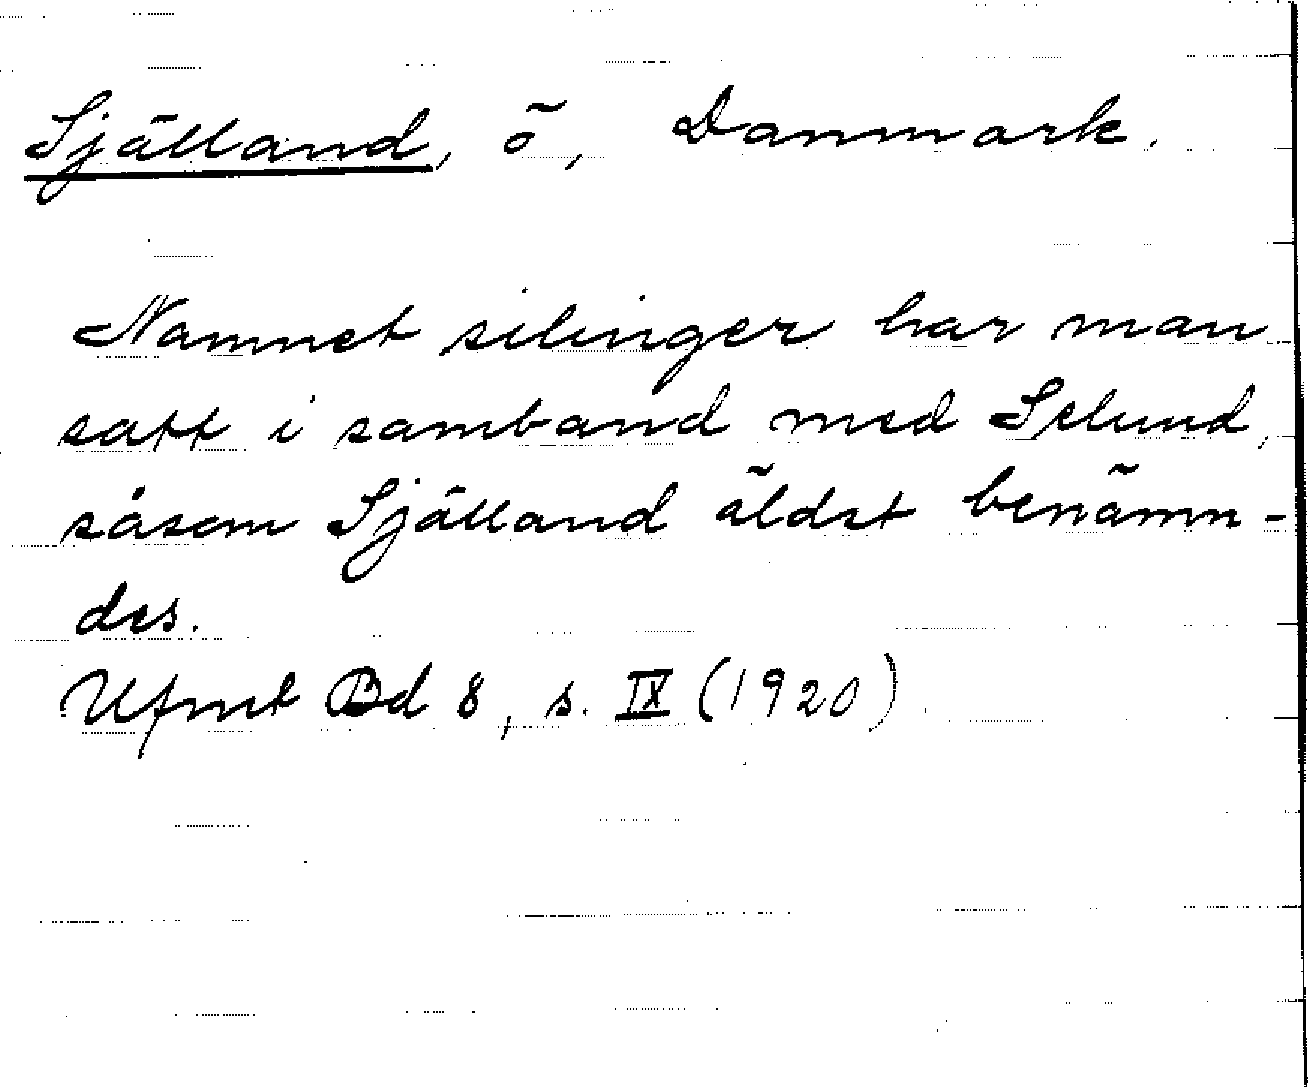 Själland, ö, Danmark.
Namnet silinger har man
satt i samband med Selund,
såsom Själland äldst benämn-
des.
Ufmt Bd 8, s. IX (1920)